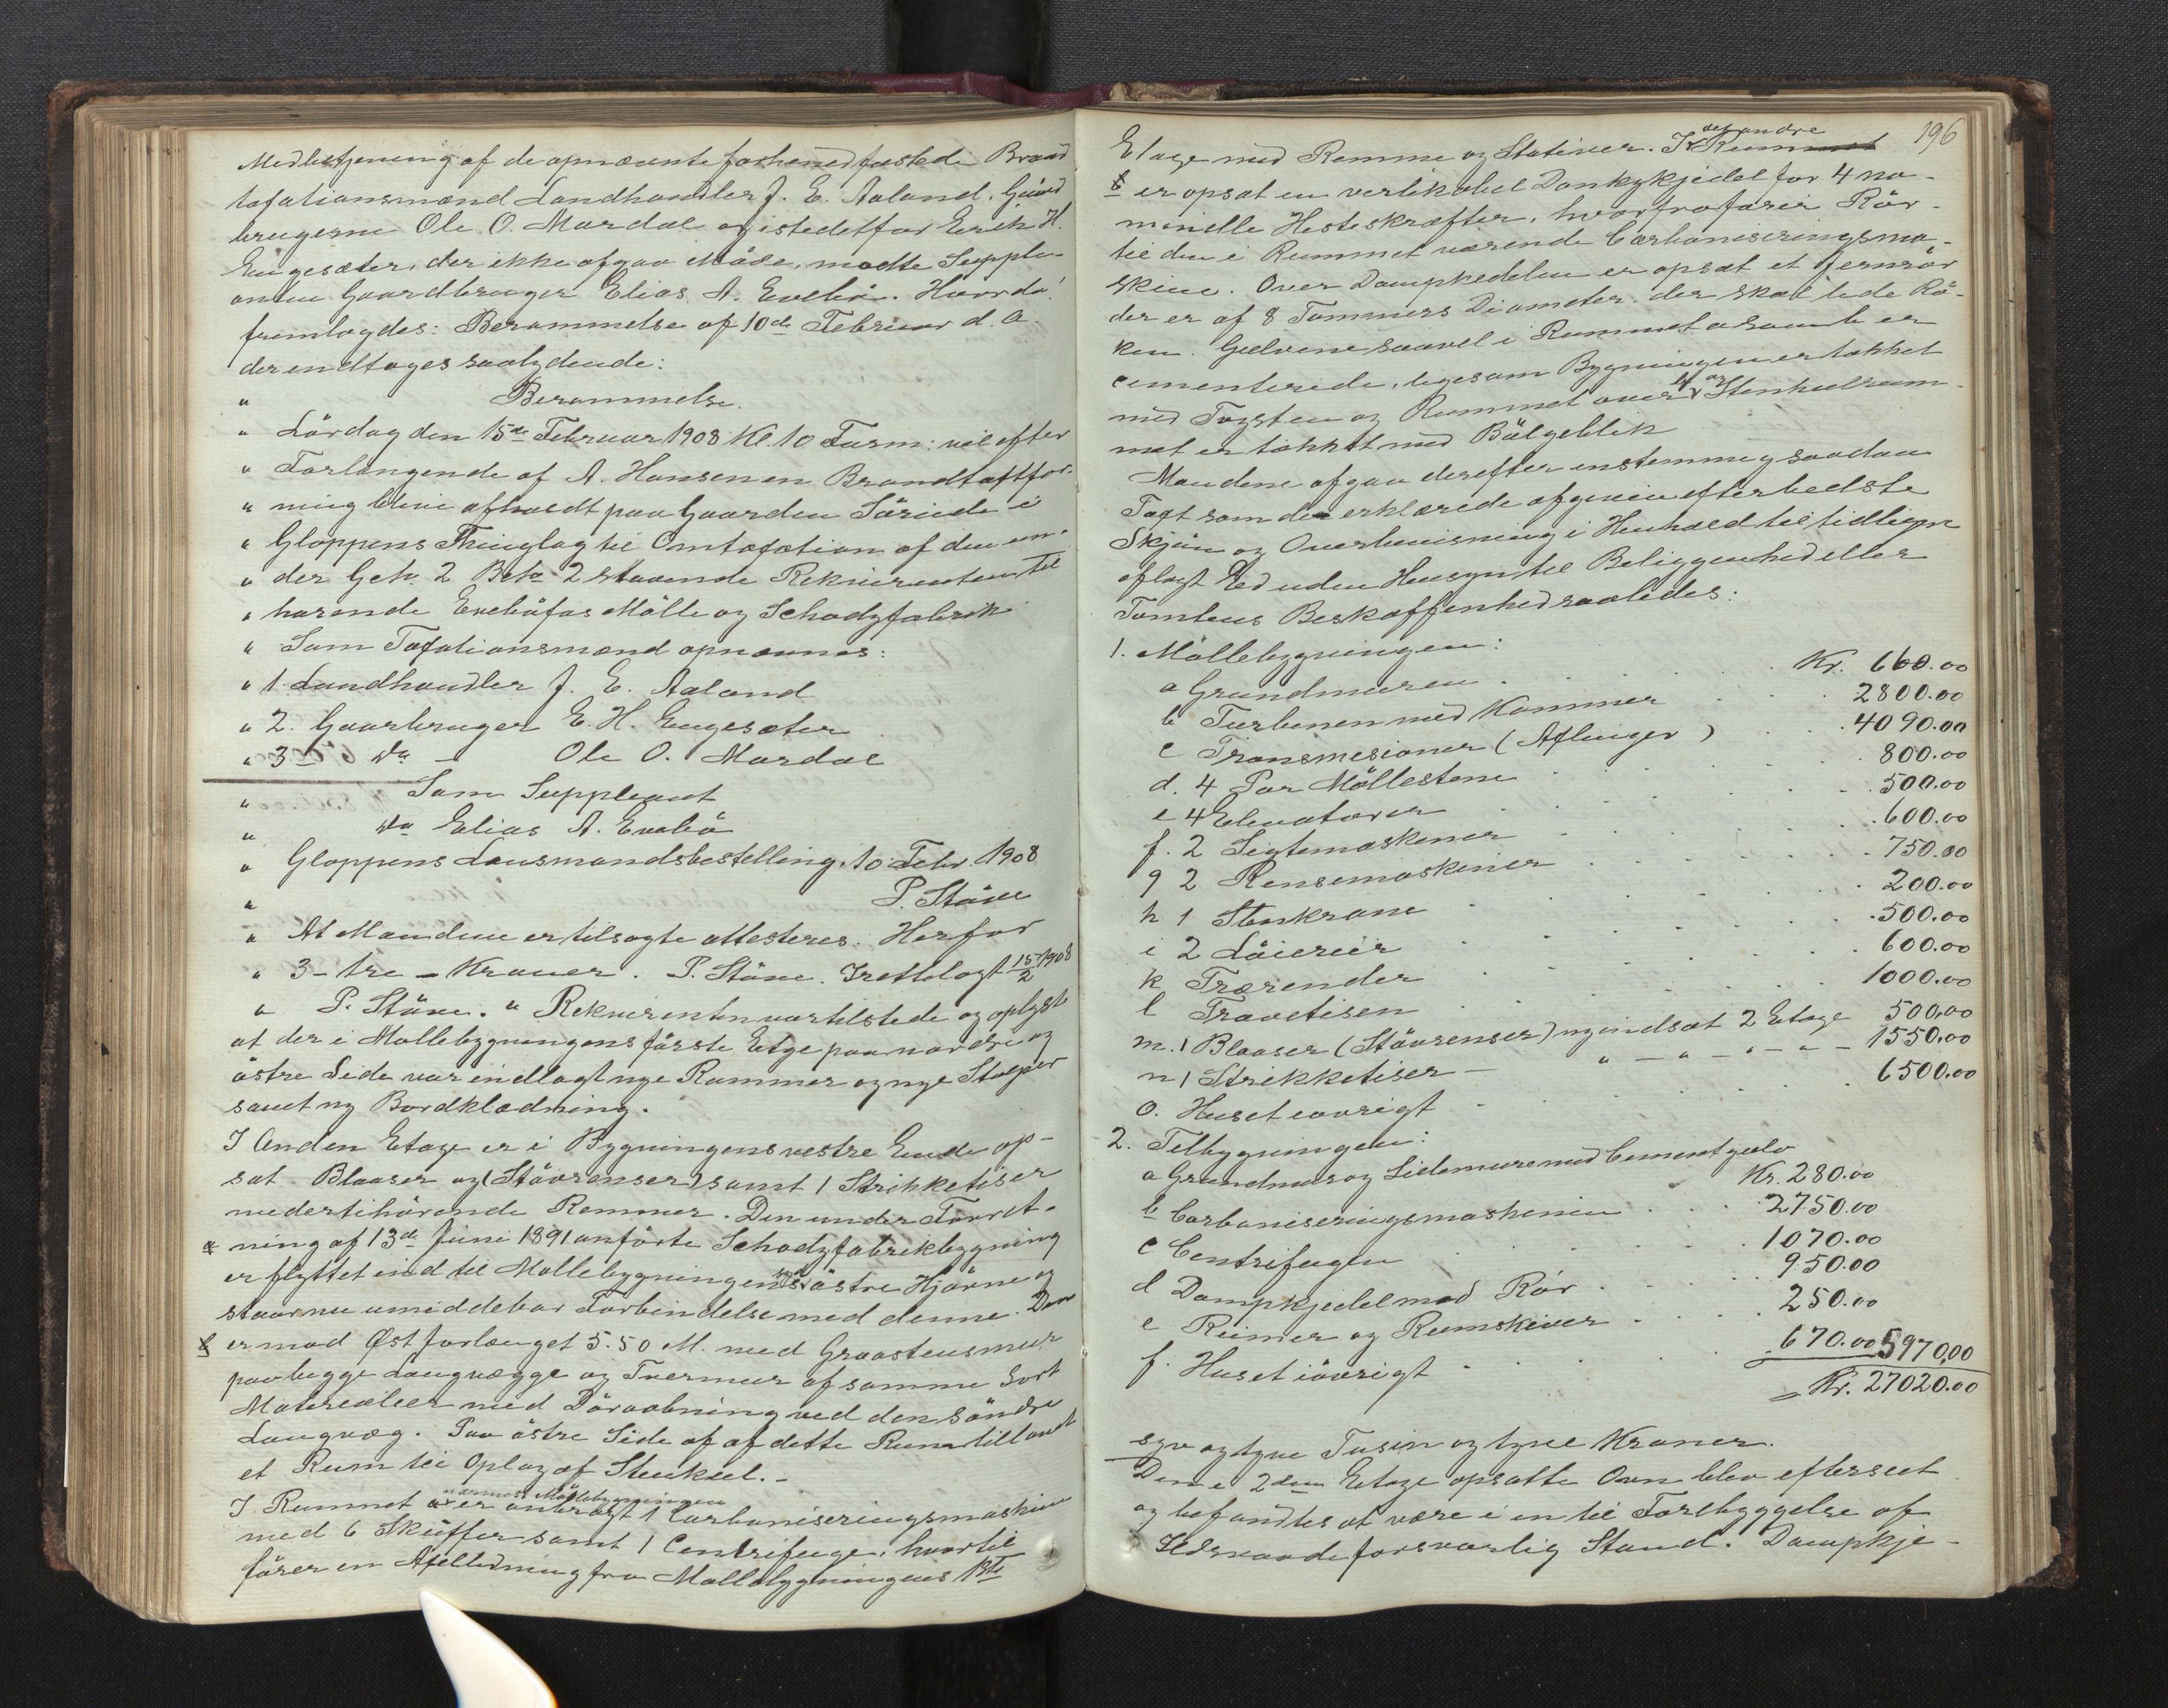 Medbetjening af de opnævnte forhen edfæstede Brand
taxationsmænd Landhandler J. E. Aaland, Gaard
brugerne Ole O. Mardal og istedetfor Erik H.
Engesæter, der ikke afgav Møde, mødte Supple-
anten Gaardbruger Elias A. Evebö. Hvorda
fremlagdes: Berammelse af 10de Februar d. A.
der indtages saalydende:
" Berammelse.
" Lördag den 15de Februar 1908 Kl. 10 Form: vil efter
" Forlangende af A. Hansen en Brandtaxtfor-
" ning blive afholdt paa Gaarden Söriede i
" Gloppens Thinglag til Omtaxation af den un-
" der Litr. 2 Bok 2 staaende Rekvirenten til
" hörende Eveböfos Mölle og Schodyfabrik
" Som Taxationsmænd opnævnes:
" 1. Landhandler J. E. Aaland
" 2. Gaarbruger E. H. Engesæter
" 3 - do - Ole O. Mardal
" Som Suppleant
" do Elias A. Evebö
" Gloppens Lensmandsbestilling, 10 Febr. 1908
" P. Stöve
" At Mændene er tilsagte attesteres. Herfor
" 3 - tre - Kroner. P. Stöve. Fretlelagt 15/2 1908
" P. Stöve. " Rekvirenten var tilstede og oplyst
at der i Möllebygningens förste Etge paa nordre og
östre Side var indlagt nye Rammer og nye Stolper
samt ny Bordklædning.
I Anden Etage er i Bygningens vestre Ende op-
sat Blaaser og (Stövrenser) samt 1 Strikketiser
medertihörende Remmer. Den under Forret-
a ning af 13de Juni 1891 anförte Schodyfabrikbygning
er flyttet ind til Möllebygningens östre Hjörne og
staar nu umiddebar Forbindelse med denne. Den
b er mod Øst forlænget 5.50 M. med Graastensmur
paa begge Langvægge og Tvermur af samme Sort
Materialier med Döraabning ved den söndre
Langvæg. Paa östre Side af af dette Rum er tillavet
et Rum til Oplag af Stenkul. -
nærmest Möllebygningen
I Rummet a er anbragt 1 Carboniseringsmaskine
med 6 Skuffer samt 1 Centrifuge, hvortil
förer en Axelledning fra Möllebygningens 1ste
196
det andre
Etage med Remme og Stativer. I Rummet
b er opsat en vertikabel Dankykjedel for 4 no-
minelle Hesteskræfter, hvorfra förer Rör
til den i Rummet værende Carboniseringsma-
skine. Over Dampkedelen er opsat et Jernrör
der er af 8 Tommers Diameter, der skal lede Rö-
ken. Gulvene saavel i Rummet a som b er
cementerede, ligesom Bygningen er takket
med Tagsten og Rummet over b og Stenkulrum
met er takket med Bölgeblik
Mændene afgav derefter enstemmig saadan
Taxt som de erklærede afgiven efter bedste
Skjön og Overbevisning i Henhold til tidligere
aflagt Ed uden Hensyn til Beliggenhed eller
Tomtens Beskaffenhed saaledes:
1. Möllebygningen:
a Grundmuren . . . Kr. 660.00
b Turbinen med Kammer . . 2800.00
c Transmesioner (Axlinger) . . 4090.00
d. 4 Par Möllestene . . 800.00
e 4 Elevatorer . . 500.00
f. 2 Sigtemaskiner . . 600.00
g 2 Rensemaskiner . . 750.00
h 1 Stenkrane . . 200.00
i 2 Löiereir . . 500.00
k Trærender . . 600.00
l Travetisen . . 1000.00
m. 1 Blaaser (Stövrenser) ny indsat 2 Etage 500,00
n 1 Strikketiser - " - " - " - " - 1550,00
o. Huset iøvrigt . . 6500.00
2. Tilbygningen:
a Grundmur og Sidemure med Cementgulv
Kr. 280.00
b Carboniseringsmaskinen . . 2750.00
c Centrifugen . . 1070.00
d Dampkjedel med Rör . . 950.00
e Reimer og Remskiver . . 250.00
f. Huset iövrigt . . 670.00 5970,00
= Kr. 27020.00
syv og tyve Tusin og tyve Kroner.
Den i 2den Etage opsatte Ovn blev efterseet
og befandtes at være i en til Forebyggelse af
Ildsvaade forsvarlig Stand. Dampkje-